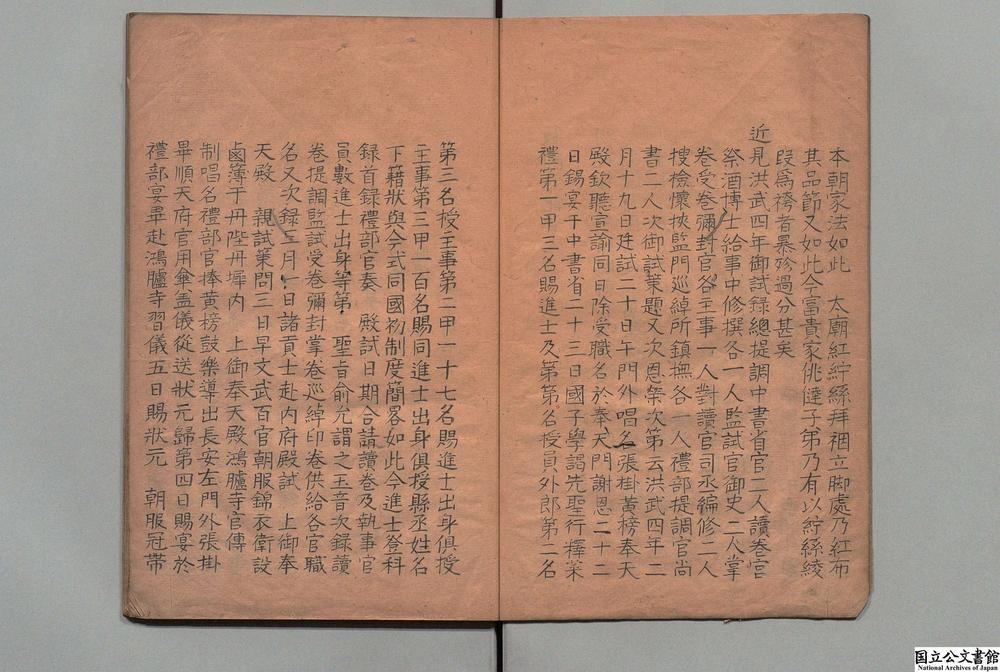 本朝家法如此　太廟紅紵絲拜裀立脚處乃紅布
其品節又如此今富貴家佻㒓子弟乃有以紵絲綾
段爲袴者暴殄過分甚矣
近見洪武四年御試錄總提調中書省官二人讀卷官
祭酒博士給事中修撰各一人監試官御史二人掌
卷受卷彌封官各主事一人對讀官司丞編修二人
搜檢懷挾監門巡綽所鎮撫各一人禮部提調官尚
書二人次御試策題又次恩榮次第云洪武四年二
月十九日廷試二十日午門外唱名張掛黃榜奉天
殿欽聽宣諭同日除受職名於奉天門謝恩二十二
日錫宴于中書省二十三日國子學謁先聖行釋菜
禮第一甲三名賜進士及第第名授員外郎第二名
第三名授主事第二甲一十七名賜進士出身俱授
主事第三甲一百名賜同進士出身俱授縣丞姓名
下籍狀與今式同國初制度簡畧如此今進士登科
錄首錄禮部官奏　殿試日期合請讀卷及執事官
員數進士出身等第　聖旨俞允謂之玉音次錄讀
卷提調監試受卷彌封掌卷巡綽印卷供給各官職
名又次錄三月一日諸貢士赴內府殿試　上御奉
天殿　親試策問三日早文武百官朝服錦衣衛設
鹵簿于丹陛丹墀內　上御奉天殿鴻臚寺官傳
制唱名禮部官捧黃榜鼓樂導出長安左門外張掛
畢順天府官用傘盖儀從送狀元歸第四日賜宴於
禮部宴畢赴鴻臚寺習儀五日賜狀元　朝服冠帶
国立公文書館
National Archives of Japan